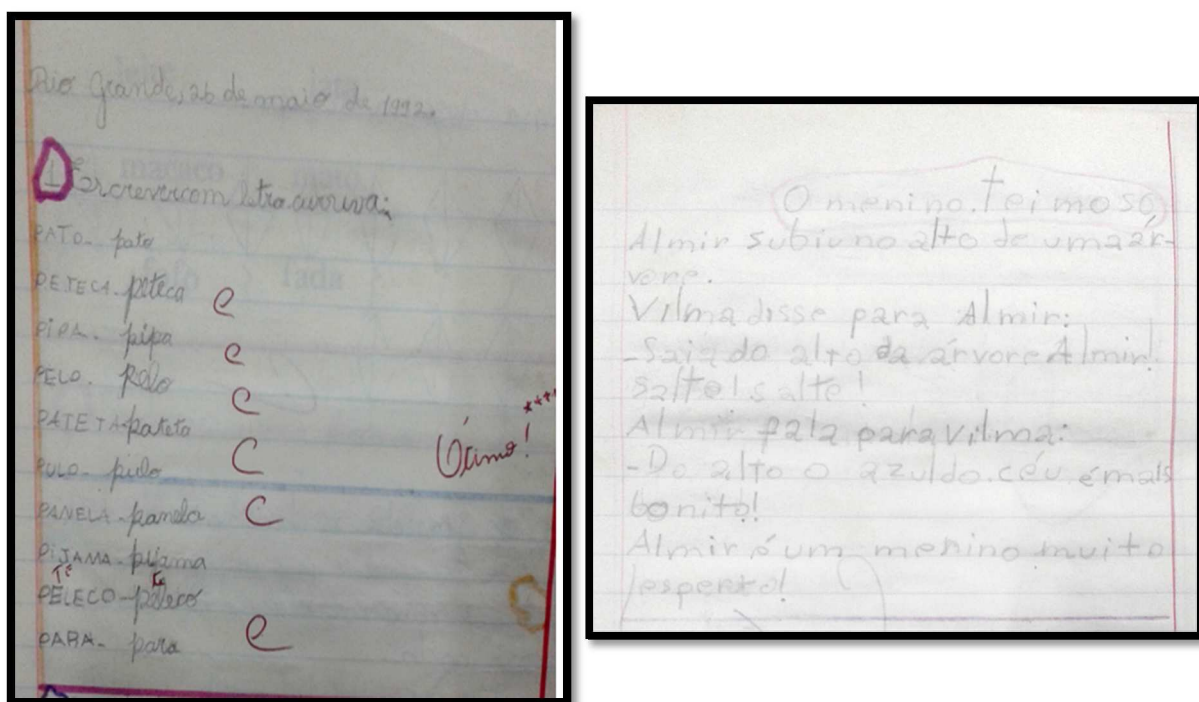 Rio Grande, 26 de maio de 1992.
1 Escrever com letra cursiva:
PATO - pato
PETECA - peteca e
PIPA - pipa e
PELO - pelo e
PATETA - pateta
Ótimo! ****
PULO - pulo C
PANELA - panela C
PIJAMA - pijama
Te Te
PELECO - peleco
PARA - para e
O menino teimoso
Almir subiu no alto de uma ár-
vore.
Vilma disse para Almir:
-Saia do alto da árvore Almir!
Salte! salte!
Almir fala para Vilma:
-Do alto o azul do céu é mais
bonito!
Almir é um menino muito
esperto!